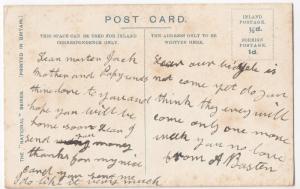 POST CARD.
THE "NATIONAL" SERIES. (PRINTED IN BRITAIN.)
THIS SPACE CAN BE USED FOR INLAND CORRESPONDENCE ONLY.
THE ADDRESS ONLY TO BE WRITTEN HERE.
INLAND
POSTAGE
½d.
FOREIGN
POSTAGE
1d.
Dear Jack
Mother and
love to you and
hope you will be
home soon
send money
thanks for my nice
card you send me
I do like it very much
Dear our is
not come yet do you
think they ever will
come only one more
you no love
from A Buster